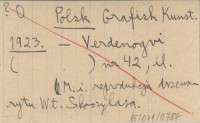 ? O Polsk Grafisk Kunst.
1923. – Verdenogvi
( ) nr 42, il.
(M. i. reprodukcja drzewo-
rytu Wł. Skoczylasa.